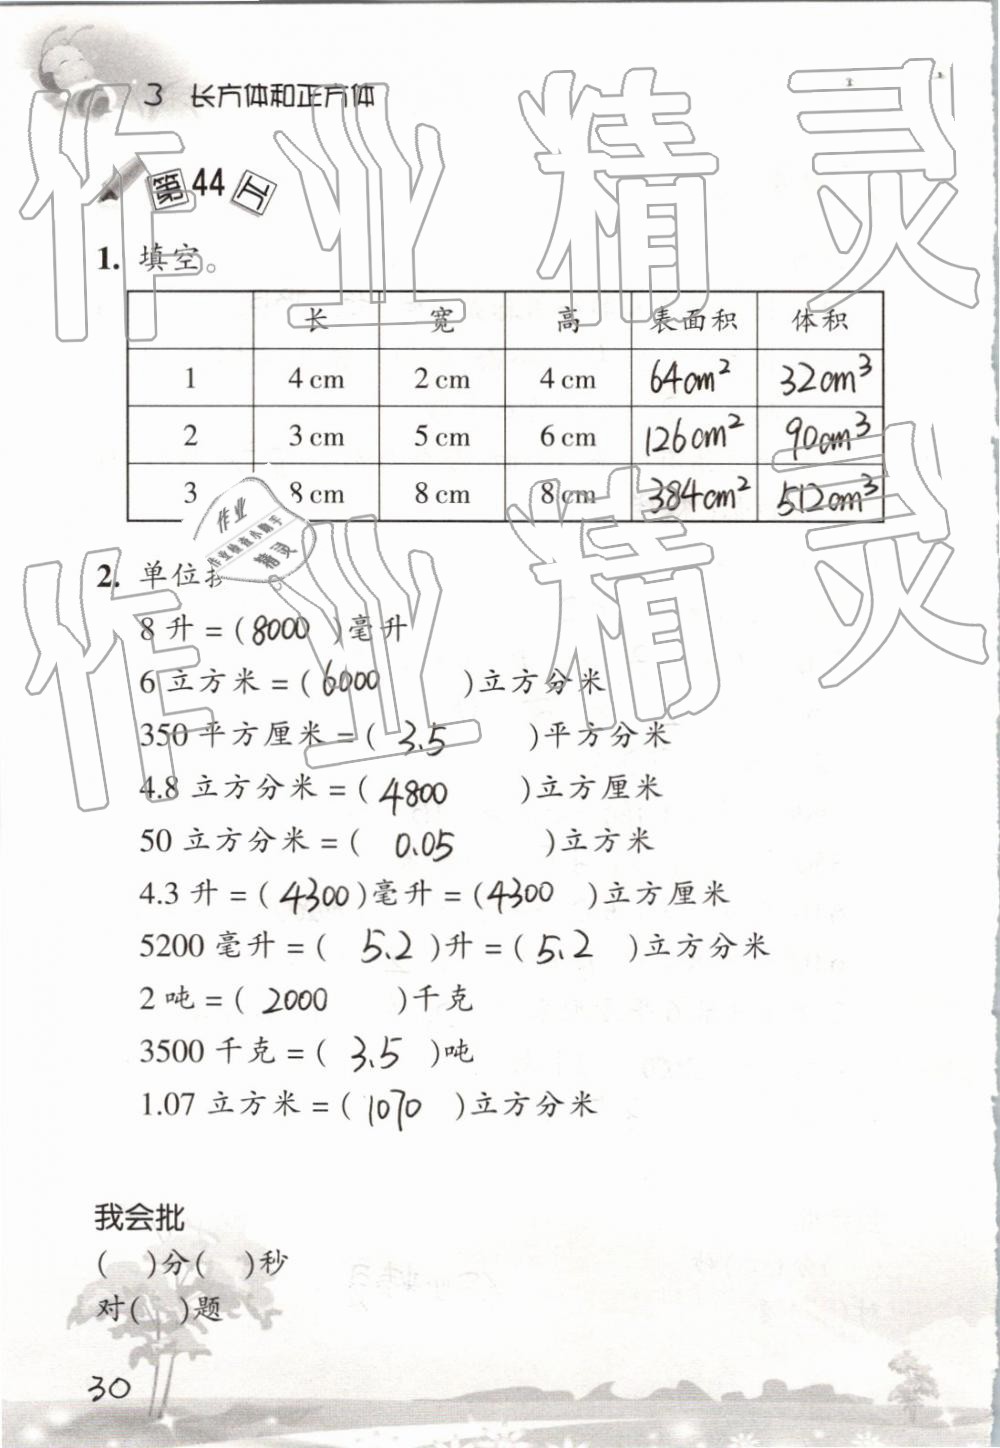 3 长方体和正方体
第44工
1. 填空。
长 宽 高 表面积 体积
1 4 cm 2 cm 4 cm 64cm² 32cm³
2 3 cm 5 cm 6 cm 126cm² 90cm³
3 8 cm 8 cm 8 cm 384cm² 512cm³
作业
作业检查小助手
精灵
2. 单位
8 升 = (8000)毫升
6 立方米 = (6000)立方分米
350 平方厘米 = (3.5)平方分米
4.8 立方分米 = (4800)立方厘米
50 立方分米 = (0.05)立方米
4.3 升 = (4300)毫升 = (4300)立方厘米
5200 毫升 = (5.2)升 = (5.2)立方分米
2 吨 = (2000)千克
3500 千克 = (3.5)吨
1.07 立方米 = (1070)立方分米
我会批
( )分( )秒
对( )题
30
作业精灵
作业精灵